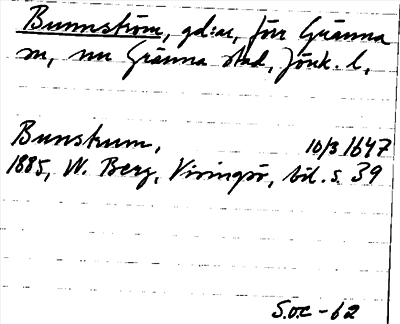 Bunnström, gd:ar, förr Gränna
sn, nu Gränna stad, Jönk. l,
Bunstrum, 10/3 1647
1885, W. Berg, Visingsö, bil. s. 39
S.O.C. - 62